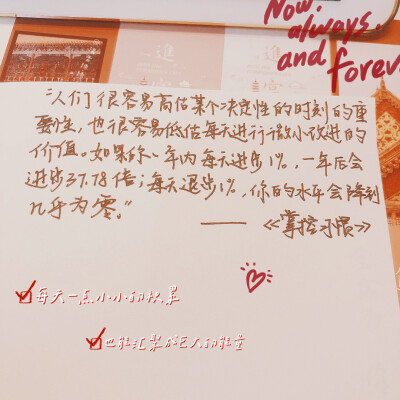 Now,
always,
and forev
“人们很容易高估某个决定性的时刻的重
要性，也很容易低估每天进行微小改进的
价值。如果你一年内每天进步1%，一年后会
进步37.78倍；每天退步1%，你的水平会降到
几乎为零。”
——《掌控习惯》
每天一点小小的积累
也能汇聚成巨人的能量